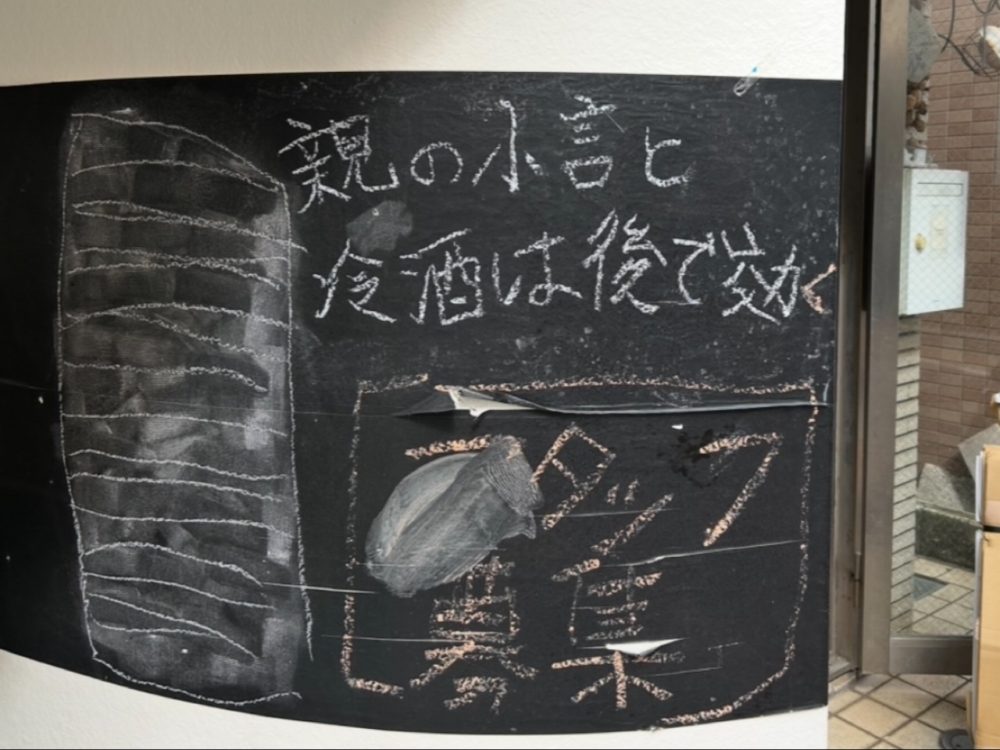 親の小言と
冷酒は後で効く
スタッフ
募集